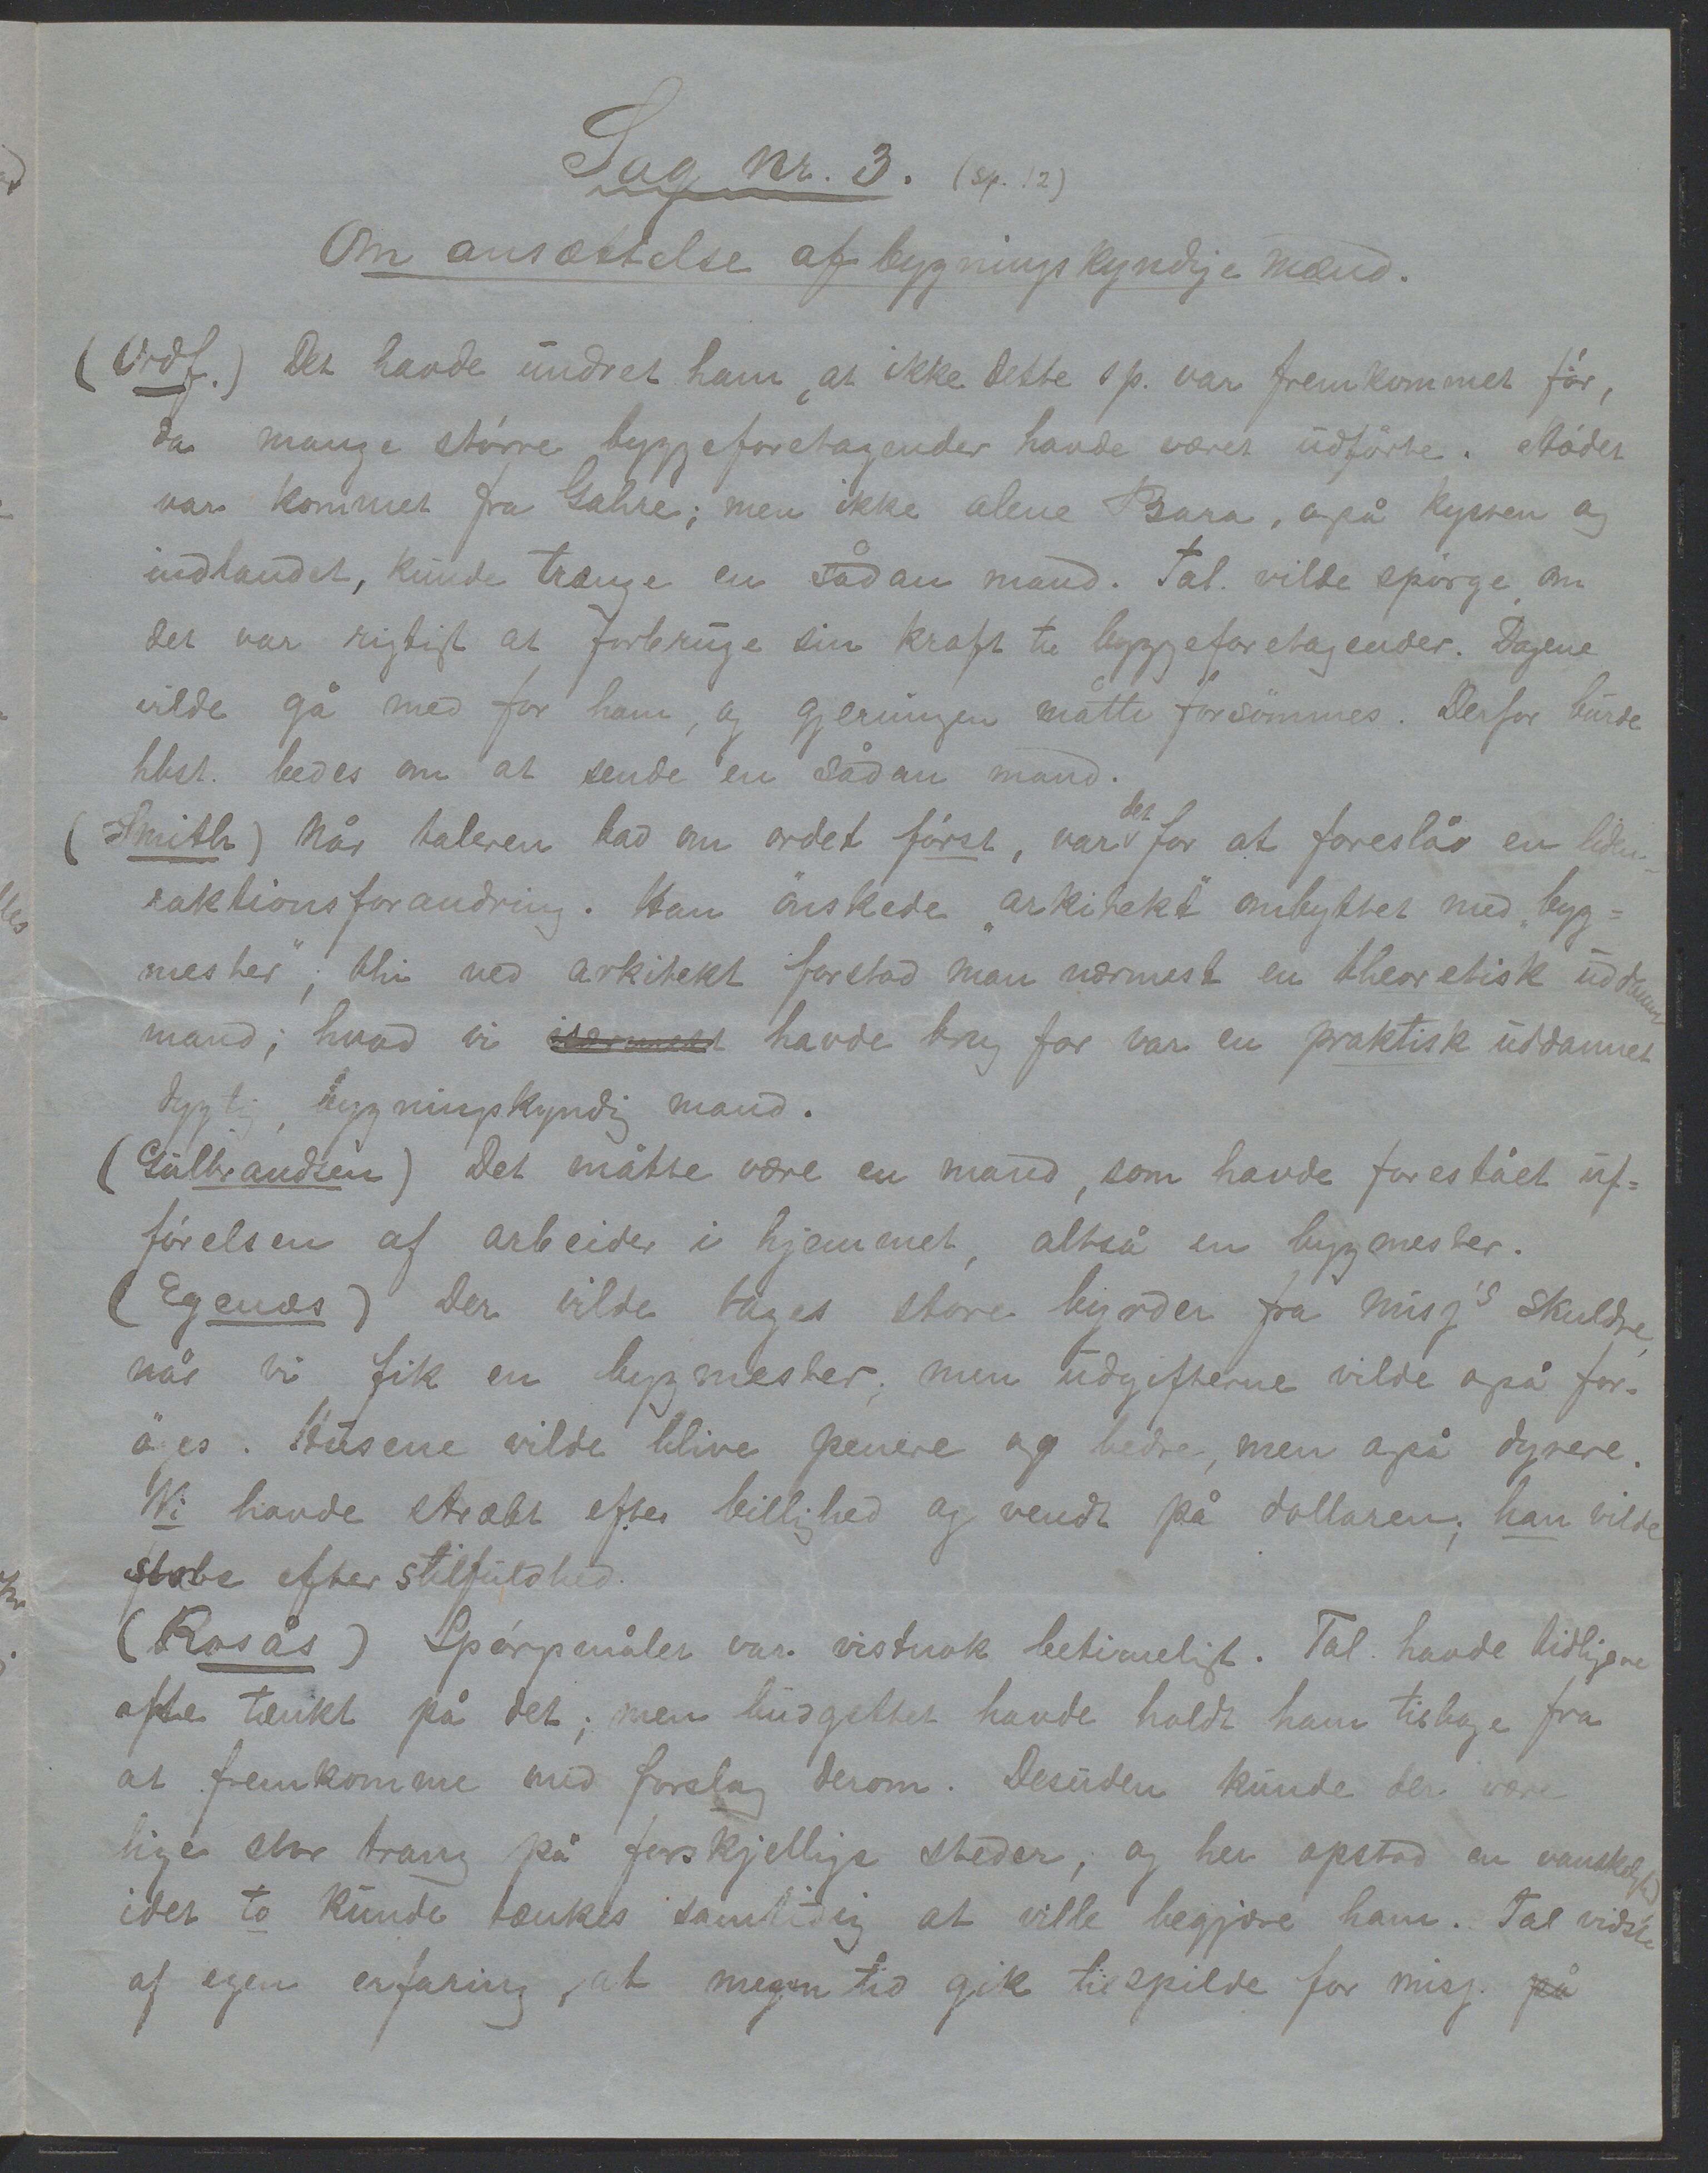 Sag nr. 3. (sp. 12)
Om ansættelse af bygningskyndige mænd.
(Ordf.) Det havde undret ham, at ikke dette sp. var fremkommet før,
da mange større byggeforetagender havde været udførte. Mødet
var kommet fra ; men ikke alene Bara, også kysten og
indlandet, kunde trænge en sådan mand. Tal. vilde spørge, om
det var rigtigt at forbruge sin kraft til byggeforetagender. Dagene
vilde gå med for ham, og gjerningen måtte forsømmes. Derfor burde
hbst. bedes om at sende en sådan mand.
(Smith) Når taleren bad om ordet først, var det for at foreslå en liden
raktionsforandring. Han ønskede "arkitekt" ombyttet med "byg=
mester"; thi ved arkitekt forstod man nærmest en theoretisk uddannet
mand; hvad vi havde brug for var en praktisk uddannet
dygtig, bygningskyndig mand.
(Gulbrandsen) Det måtte være en mand, som havde forestået uf=
førelsen af arbeider i hjemmet, altså en bygmester.
(Egenæs) Der vilde tages store byrder fra misj's skuldre,
når vi fik en bygmester; men udgifterne vilde også for-
øges. Husene vilde blive penere og bedre, men også dyrere.
Vi havde stræbt efter billighed og vendt på dollaren; han vilde
stræbe efter stilfuldhed.
(Rosås) Spørgsmålet var vistnok betimeligt. Tal. havde tidligere
ofte tænkt på det; men budgettet havde holdt ham tilbage fra
at fremkomme med forslag derom. Desuden kunde der være
lige stor trang på forskjellige steder, og her opstod en vanskelighed,
idet to kunde tænkes samtidig at ville begjære ham. Tal vidste
af egen erfaring, at megen tid gik til spilde for misj. på